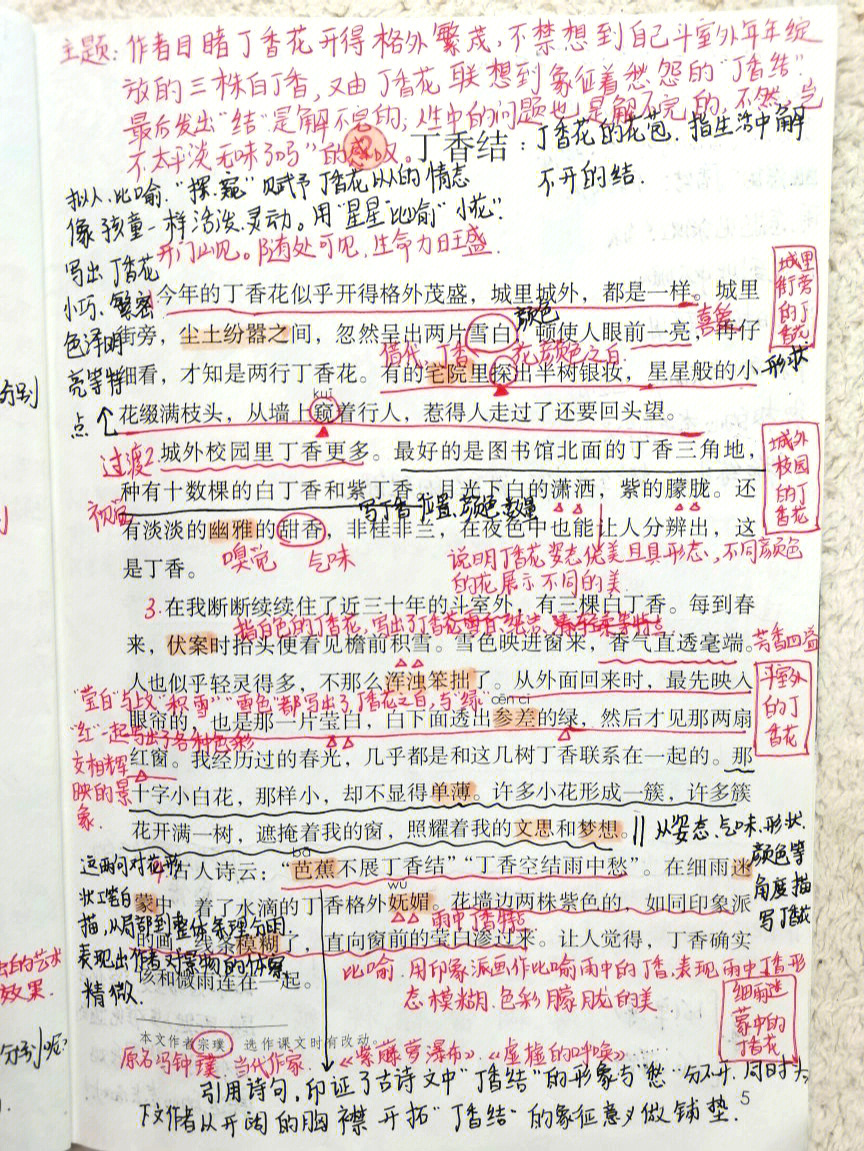 主题：作者目睹丁香花开得格外繁茂，不禁想到自己斗室外年年绽
放的三株白丁香，又由丁香花联想到象征着愁怨的“丁香结”
最后发出“结”是解不完的；人生中的问题也是解不完的，不然，岂
不太平淡无味了吗”的感叹。
丁香结：丁香花的花苞．指生活中解
不开的结．
拟人、比喻．“探、窥”赋予丁香花以人的情态
像孩童一样活泼、灵动。用“星星”比喻“小花”．
开门山见。随处可见，生命力旺盛．
写出丁香花
小巧、繁密
色泽明
亮等特
点
今年的丁香花似乎开得格外茂盛，城里城外，都是一样。城里
街旁，尘土纷嚣之间，忽然呈出两片雪白，顿使人眼前一亮，再仔
颜色
喜爱
借代，丁香花颜色之白．
细看，才知是两行丁香花。有的宅院里探出半树银妆，星星般的小
形状
kuī
花缀满枝头，从墙上窥着行人，惹得人走过了还要回头望。
城里
街旁
的丁
香花
过渡2.
城外校园里丁香更多。最好的是图书馆北面的丁香三角地，
种有十数棵的白丁香和紫丁香。月光下白的潇洒，紫的朦胧。还
视觉
写丁香位置、颜色、数量
有淡淡的幽雅的甜香，非桂非兰，在夜色中也能让人分辨出，这
是丁香。
嗅觉 气味
说明丁香花姿态优美且具形态，不同颜色
的花展示不同的美．
城外
校园
的丁
香花
3.在我断断续续住了近三十年的斗室外，有三棵白丁香。每到春
来，伏案时抬头便看见檐前积雪。雪色映进窗来，香气直透毫端。
芳香四溢
人也似乎轻灵得多，不那么浑浊笨拙了。从外面回来时，最先映入
cēn cī
眼帘的，也是那一片莹白，白下面透出参差的绿，然后才见那两扇
红窗。我经历过的春光，几乎都是和这几树丁香联系在一起的。那
十字小白花，那样小，却不显得单薄。许多小花形成一簇，许多簇
花开满一树，遮掩着我的窗，照耀着我的文思和梦想。
斗室外
的丁
香花
“莹白”与上文“积雪”“雪色”都写出了丁香花之白，与“绿”
“红”一起写出了各种色彩
交相辉
映的景
象．
从姿态、气味、形状、
颜色等
角度描
写丁香花
bā
4古人诗云：“芭蕉不展丁香结”“丁香空结雨中愁”。在细雨迷
wǔ
蒙中，着了水滴的丁香格外妩媚。花墙边两株紫色的，如同印象派
雨中丁香特点
的画，线条模糊了，直向窗前的莹白渗过来。让人觉得，丁香确实
该和微雨连在一起。
这两句对花形
状工笔白
描，从局部到整体条理分明
表现出作者对景物的体察
精微．
比喻．用印象派画作比喻雨中的丁香，表现雨中丁香形
态模糊．色彩朦胧的美
细雨迷
蒙中的
丁香花
本文作者宗璞，选作课文时有改动。
原名冯钟璞 当代作家．《紫藤萝瀑布》．《虚墟的呼唤》
引用诗句，印证了古诗文中“丁香结”的形象与“愁”分不开．同时为
下文作者从开阔的胸襟开拓“丁香结”的象征意义做铺垫．
5
分别
效果．
分别呢？